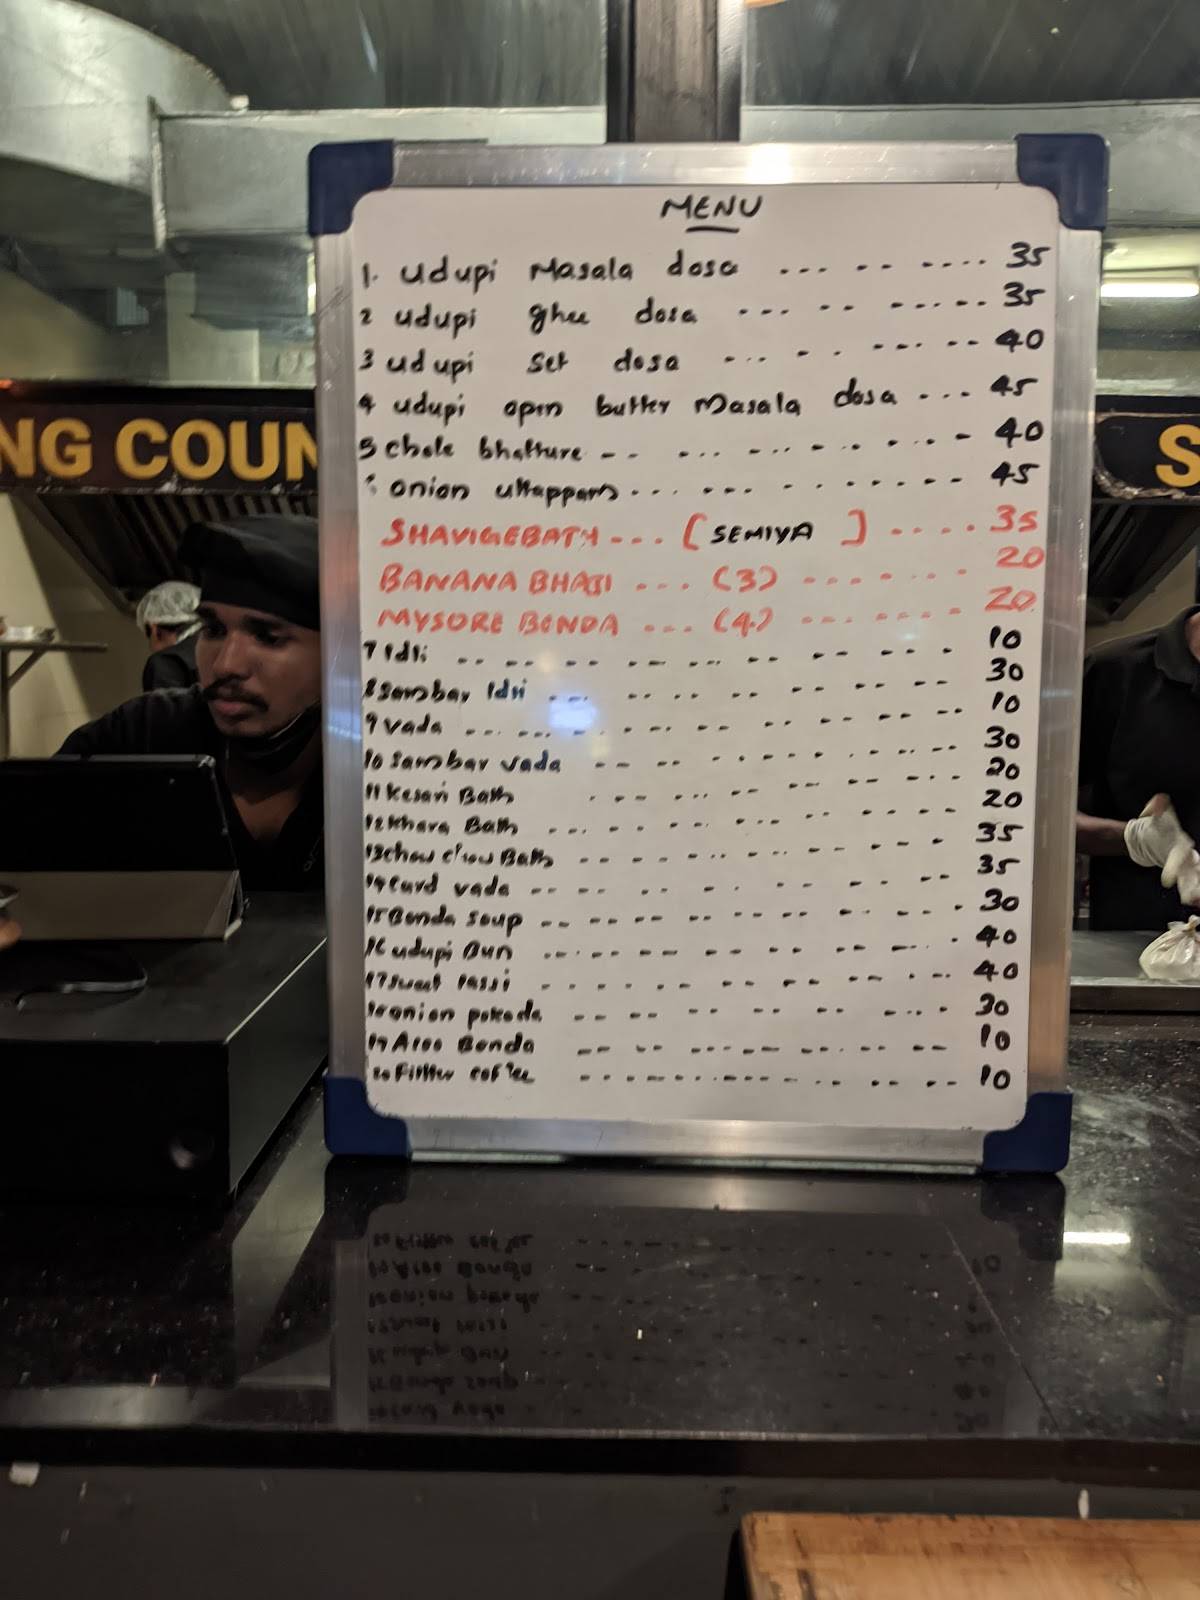 MENU
1. Udupi Masala dosa --- -- ---- 35
2 udupi ghee dosa --- -- ----- 35
3 udupi set dosa --- - - ---- -- 40
4 udupi open butter Masala dosa --- 45
5 Chole bhatture -- --- --- -- - -- - 40
onion uttappam --- --- -- - - - - -- 45
SHAVIGEBATH --- [SEMIYA] ---- 35
BANANA BHAJI --- (3) ------- 20
MYSORE BONDA --- (4) ------- 20
7 Idli -- -- -- -- --- -- -- -- - 10
8 Sambar Idli --- -- -- -- -- -- 30
9 vada --- --- - - -- -- --- -- 10
10 Sambar vada -- -- - - - - - -- 30
11 Kesari Bath - -- --- -- -- --- 20
12 Khara Bath --- -- --- -- -- 20
13 chow chow Bath -- -- -- -- - -- - 35
14 Curd vada -- -- -- - - -- -- 35
15 Bonda Soup -- -- -- -- -- -- - 30
16 udupi Bun --- -- -- -- -- --- - 40
17 Sweet lassi - - - - -- -- -- - -- 40
onion pakoda -- -- -- -- -- --- - 30
19 Aloo Bonda -- -- --- --- -- -- 10
20 Filter coffee --- --- --- -- -- -- 10
NG COUN
S